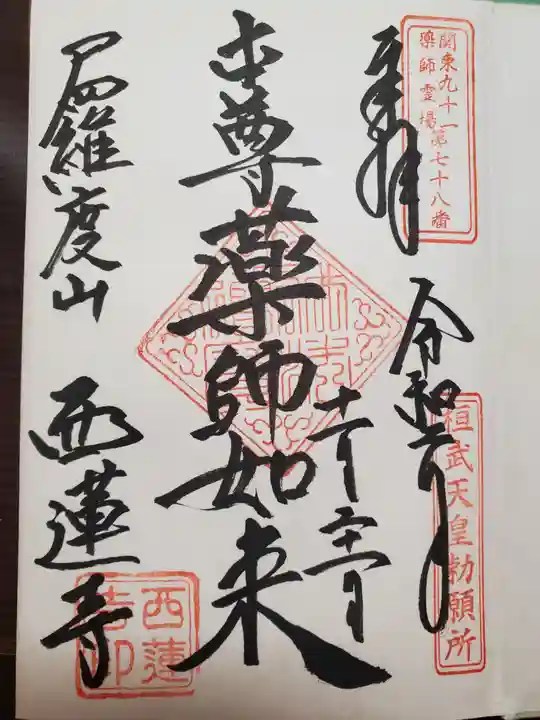 関東九十一
薬師霊場第七十八番
奉拝
令和六年
桓武天皇勅願所
本尊薬師如来
尸羅度山
西蓮寺
西蓮
寺印